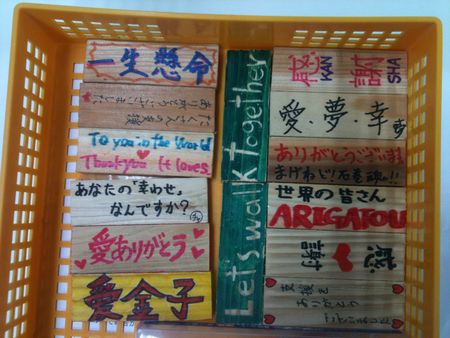 一生懸命
たくさんの支援
ありがとうございました
To you in the World
Thank you It loves.
あなたの「幸わせ」
なんですか?
愛ありがとう
愛金子
Let's walk together
感謝
KAN SHA
愛・夢・幸
ありがとうございます
まけねど!石巻魂!!
世界の皆さん
ARIGATOU
感謝
支援を
ありがとう